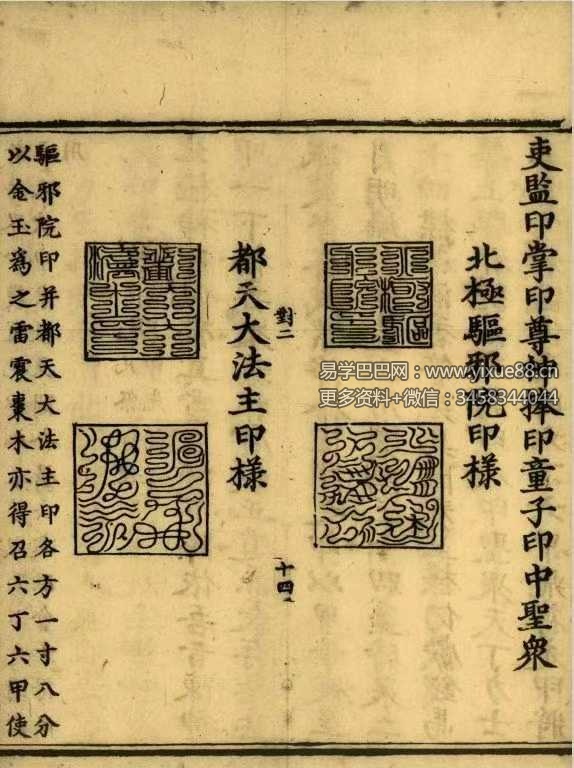 吏監印掌印尊神捧印童子印中聖衆
北極驅邪院印様
對二
十四
都天大法主印様
驅邪院印并都天大法主印各方一寸八分
以金玉爲之雷震棗木亦得召六丁六甲使
易学巴巴网：www.yixue88.cn
更多资料+微信：3458344044